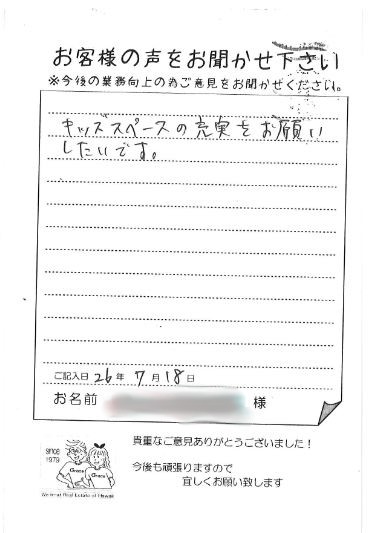 お客様の声をお聞かせ下さい
※今後の業務向上の為ご意見をお聞かせください。
キッズスペースの充実をお願い
したいです。
ご記入日 26年 7月 18日
お名前 様
貴重なご意見ありがとうございました！
今後も頑張りますので
宜しくお願い致します
since
1979
Grace
Grace